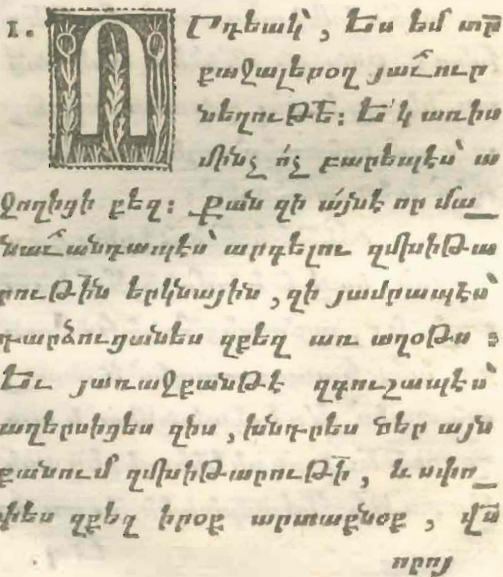 1. Որդեակ՝, Ես եմ տր̃
քաջալերօղ յաւուր
նեղութե̃: Ե՛կ առ իս
մինչ ո՛չ բարեպէս՝ ա
ջողիցի քեզ: Քան զի ա՛յսէ որ մա_
նաւանդապէս՝ արգելու զմխիթա
րութի̃ն երկնային, զի յամրապէս՝
դարձուցանես զքեզ առ աղօթս:
Եւ յառաջքանթէ զգուշապէս՝
աղերսիցես զիս, խնդրես ներ այն
քանում զմխիթարութի̃, և սփո_
փես զքեզ իրօք արտաքնօք, վս̃
որոյ